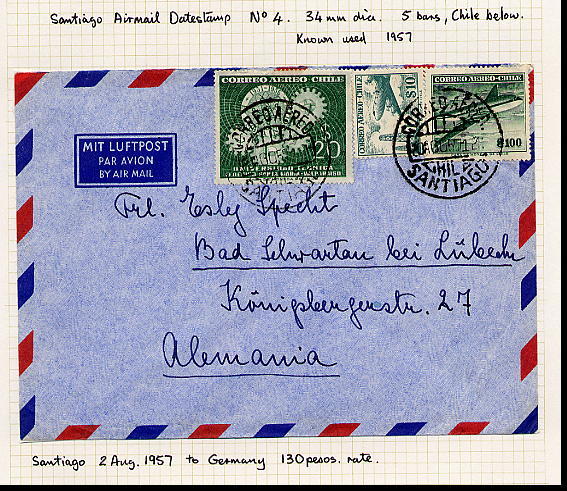 Santiago Airmail Datestamp Nº 4. 34 mm dia. 5 bars, Chile below.
Known used 1957
CORREO AEREO-CHILE
$20
UNIVERSIDAD TECNICA
CORREO AEREO-CHILE
$10
CORREO AEREO-CHILE
$100
CORREO AEREO
CHILE
SANTIAGO
MIT LUFTPOST
PAR AVION
BY AIR MAIL
Frl. Esly Specht
Bad Schwartau bei Lübeck
Königsbergerstr. 27
Alemania
Santiago 2 Aug. 1957 to Germany 130 pesos. rate.